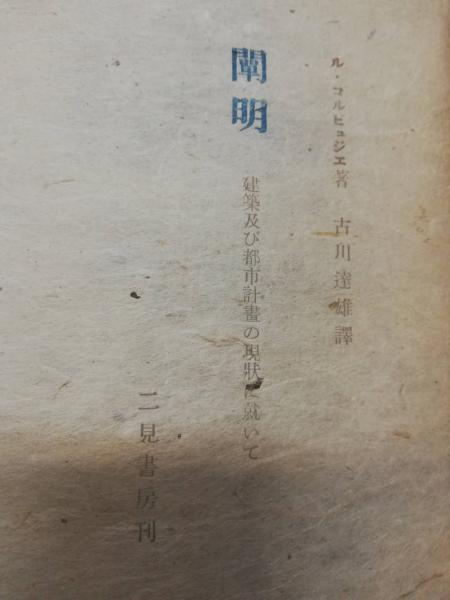 ル・コルビュジエ著 古川達雄譯
闡明
建築及び都市計畫の現狀に就いて
二見書房刊